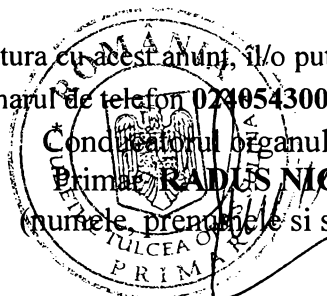 tura cu acest anunț, îl/o put
marul de telefon 024054300
Conducatorul organul
Primar, RADUS NIC
(numele, prenumele si s
ROMANIA
JUDETUL TULCEA
PRIMARIA